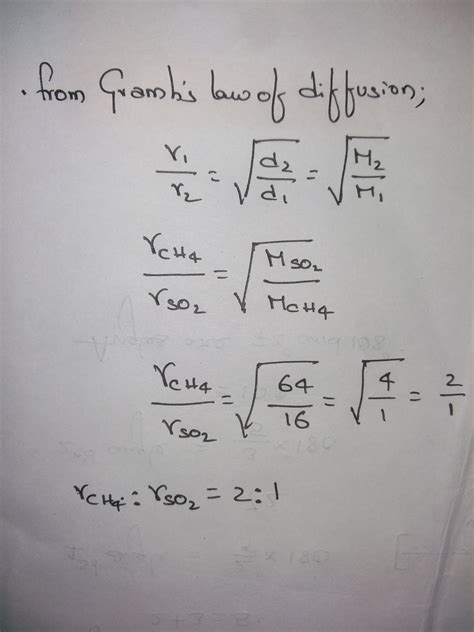 . from Gramb's law of diffusion;
r₁/r₂ = √(d₂/d₁) = √(M₂/M₁)
r_CH₄/r_SO₂ = √(M_SO₂/M_CH₄)
r_CH₄/r_SO₂ = √(64/16) = √(4/1) = 2/1
r_CH₄ : r_SO₂ = 2:1